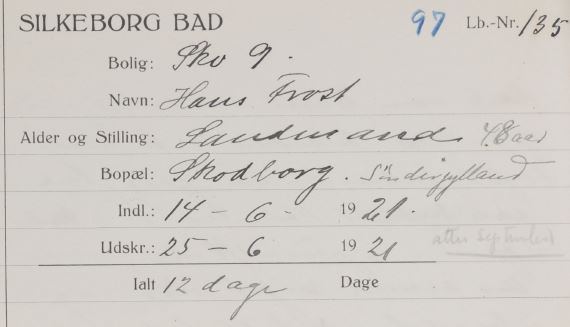 SILKEBORG BAD 97 Lb.-Nr. 135
Bolig: Sko 9.
Navn: Hans Frost
Alder og Stilling: Landmand 48 aar
Bopæl: Skodborg. Sönderjylland
Indl.: 14 - 6 - 1921.
Udskr.: 25 - 6 1921
Ialt 12 dage Dage